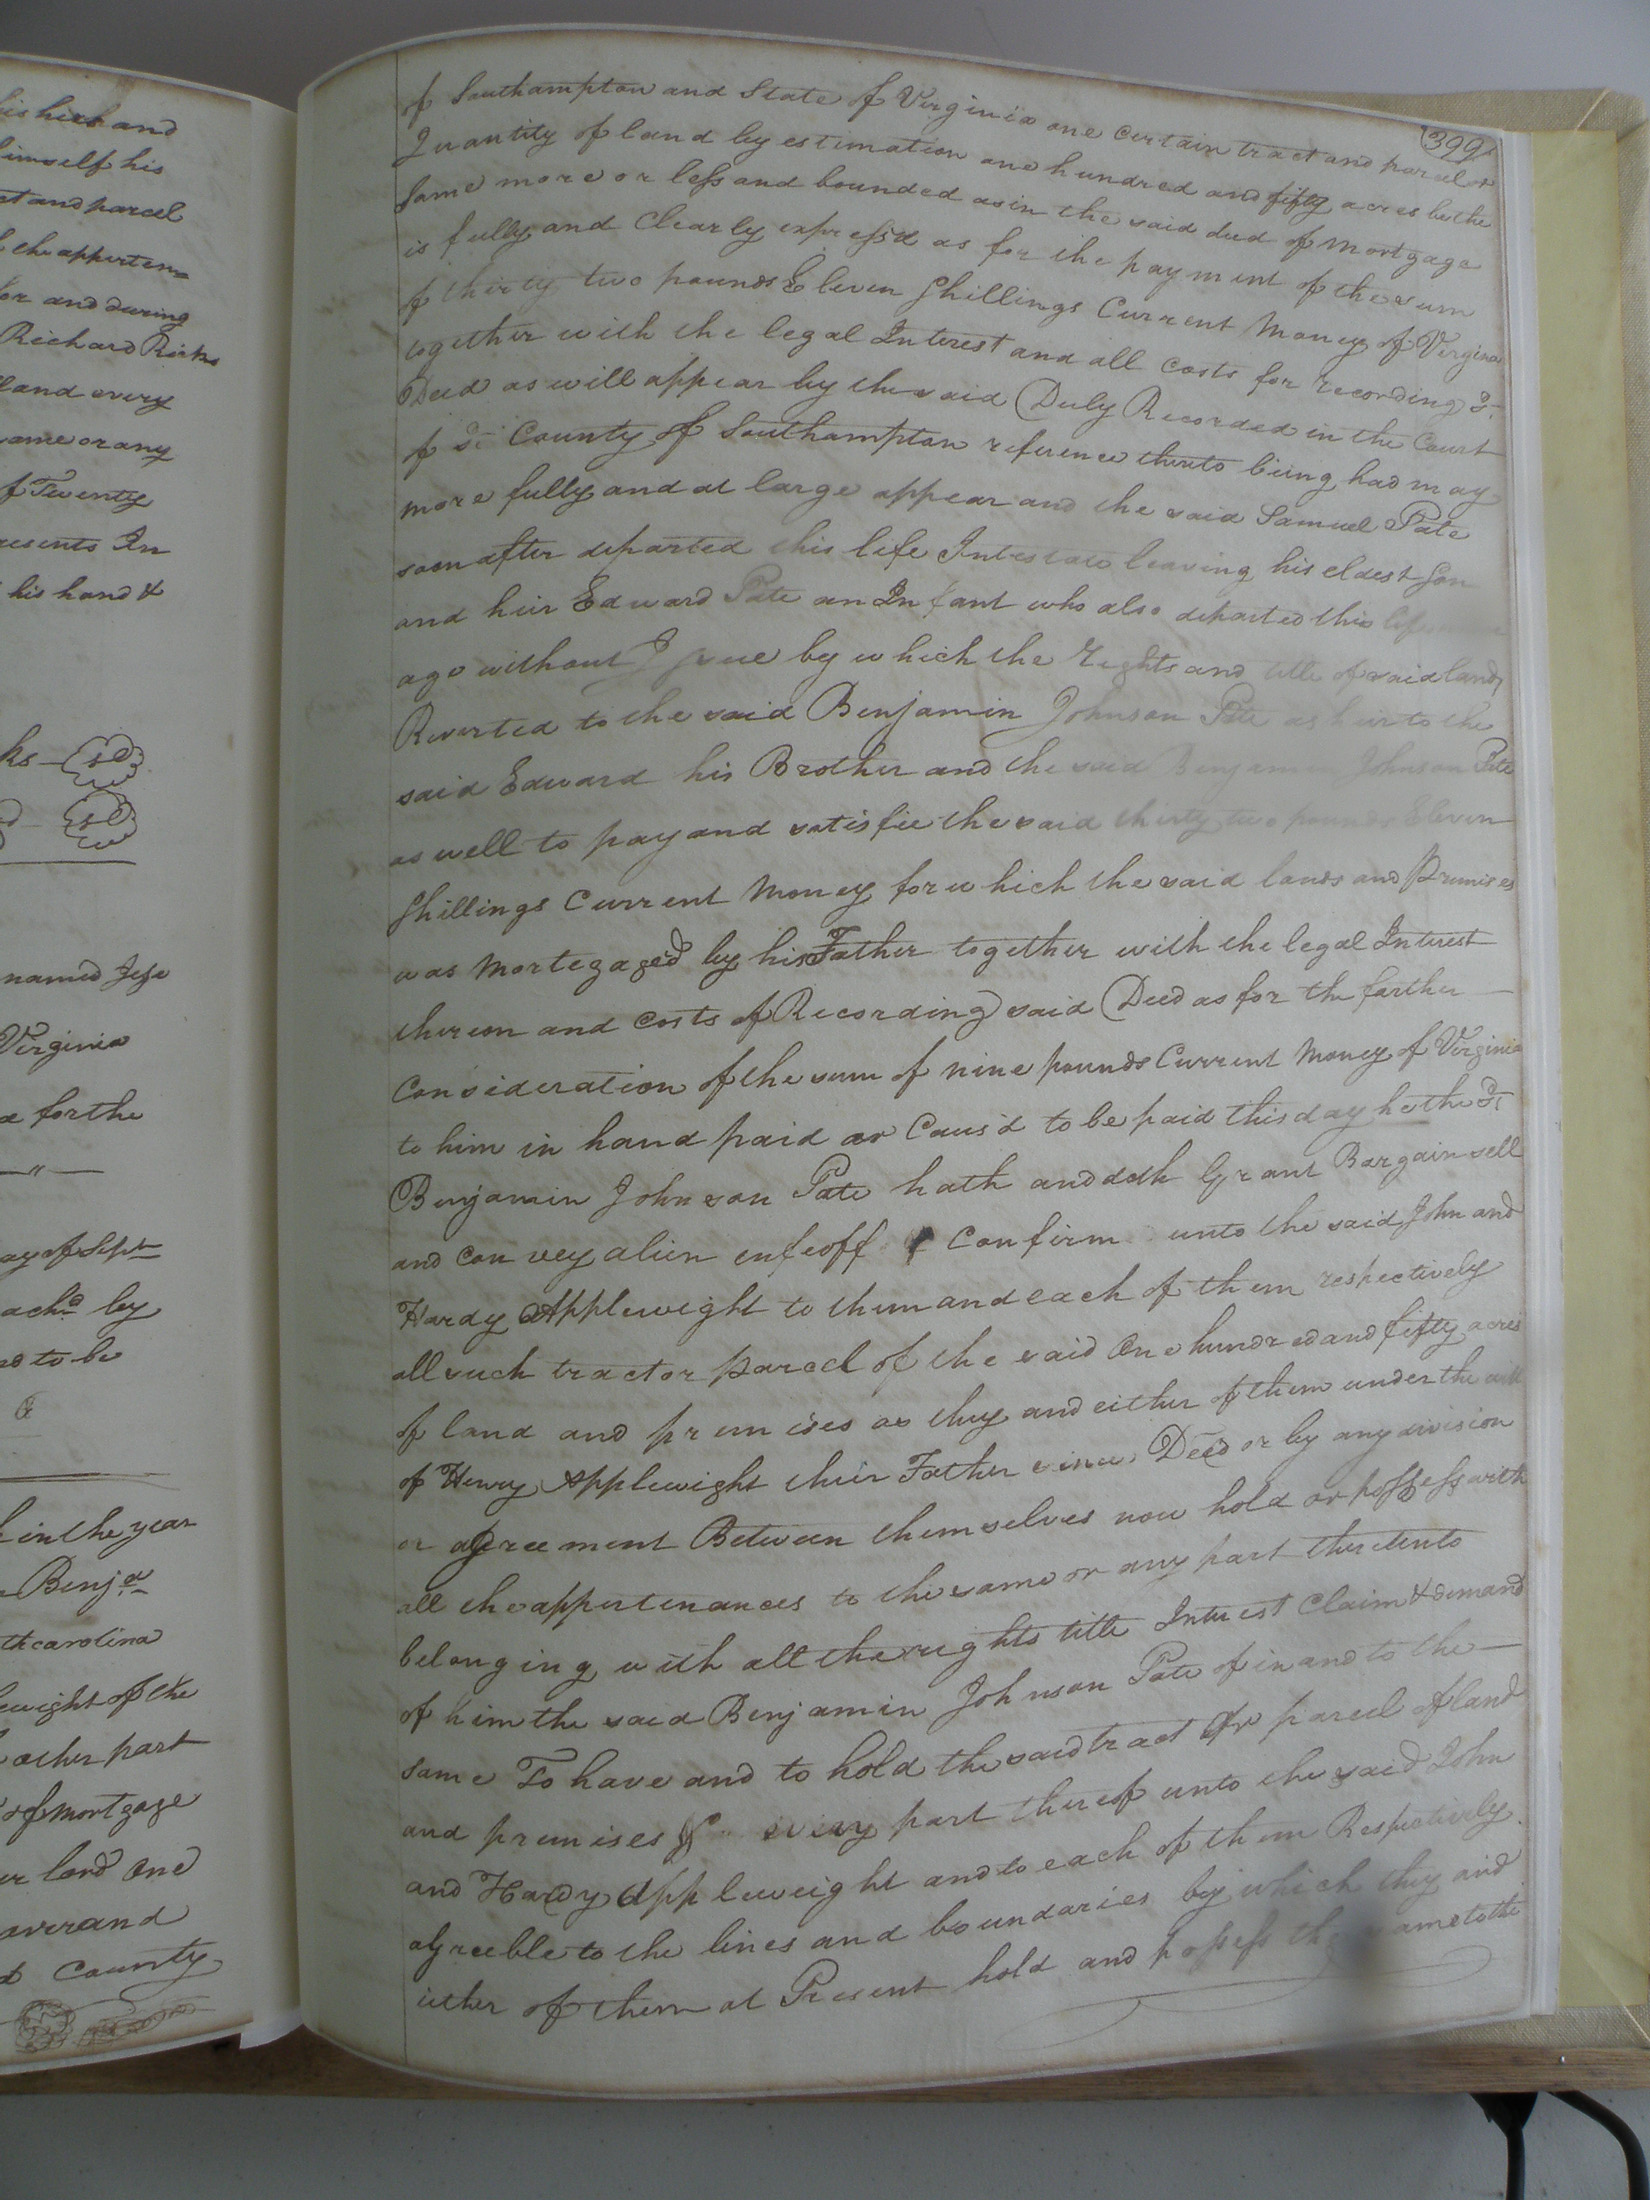 his heirs and
himself his
ct and parcel
the appurten=
for and during
Richard Ricks
land every
same or any
of Twenty
presents In
his hand &
ks
named Jesse
Virginia
for the
ay of Sept
achd by
nd to be
in the year
Benja
th carolina
lewight of the
other part
of mortgage
land one
County
399
of Southampton and State of Virginia one certain tract and parcel or
Quantity of land by estimation one hundred and fifty acres be the
Same more or less and bounded as in the said deed of mortgage
is fully and Clearly express'd as for the payment of the sum
of thirty two pounds Eleven Shillings Current Money of Virginia
together with the legal Interest and all costs for recording sd.
Deed as will appear by the said Duly Recorded in the Court
of sd County of Southampton reference thereto being had may
more fully and at large appear and the said Samuel Pate
soon after departed this life Intestate leaving his eldest Son
and heir Edward Pate an Infant who also departed this life
ago without Issue by which the Rights and title of said lands
Reverted to the said Benjamin Johnson Pate as heir to the
said Edward his Brother and the said Benjamin Johnson Pate
as well to pay and satisfie the said thirty two pounds Eleven
Shillings Current Money for which the said lands and Premises
was Mortegaged by his Father together with the legal Interest
thereon and costs of Recording said Deed as for the farther
Consideration of the sum of nine pounds Current Money of Virginia
to him in hand paid or Caus'd to be paid this day he the sd
Benjamin Johnson Pate hath and doth Grant Bargain sell
and convey alien enfeoff & Confirm unto the said John and
Hardy Applewight to them and each of them respectively
all such tract or parcel of the said One hundred and fifty acres
of land and premises as they and either of them under the will
of Henry Applewight their Father Deed or by any division
or agreement Between themselves now hold or possess with
all the appurtenances to the same or any part thereunto
belonging with all the rights title Interest Claim & demand
of him the said Benjamin Johnson Pate of in and to the
same To have and to hold the said tract or parcel of land
and premises & every part thereof unto the said John
and Hardy Applewight and to each of them Respectively
agreeble to the lines and boundaries by which they and
either of them at Present hold and possess the same to the